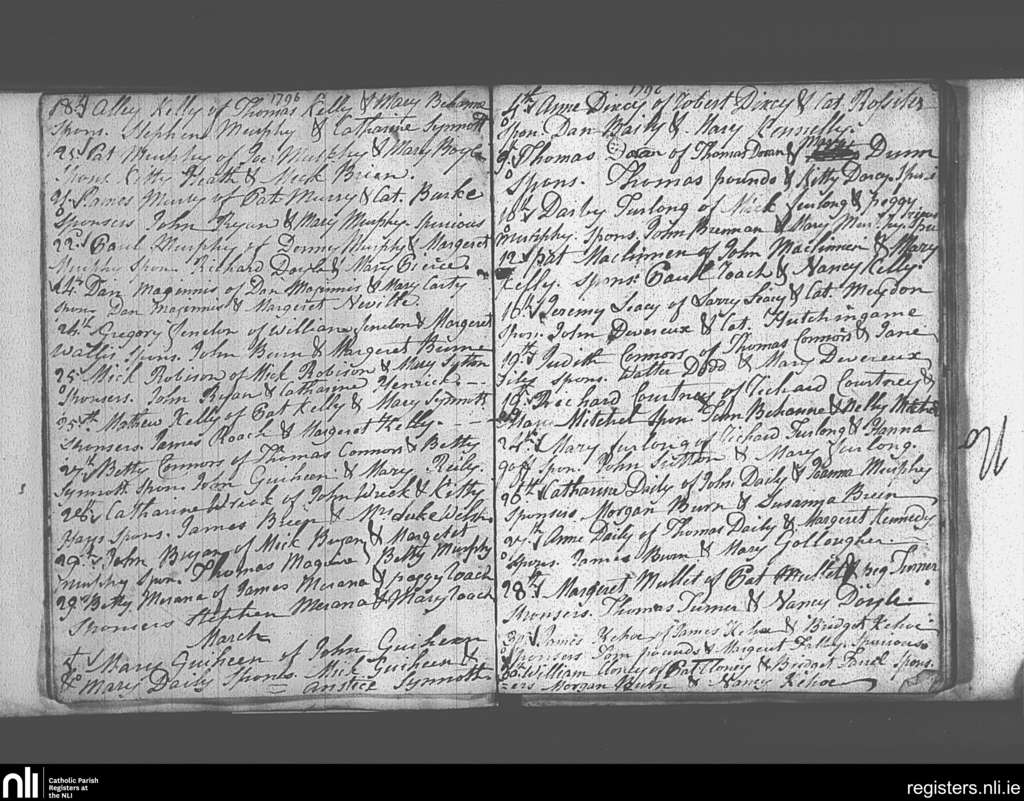 1796
18th Alley Kelly of Thomas Kelly & Mary Behanna
Spons. Stephen Murphy & Catharine Synnott
Pat Murphy of Murphy & Mary Boyle
Heath & Mick Brien
21st James Murry of Pat Murry & Cat. Burke
Sponsers John Ryan & Mary Murphy spurious
22d Paul Murphy of Murphy & Margeret
Murphy Spon. Richard Doyle & Mary Peirce
Dan Maginnis of Dan Maginnis & Mary Carty
Spons Dan Maginnis & Margeret Neville
24th Gregory of William & Margeret
Wallis Spons. John Burn & Margeret Burne
25 Mick Robison of Mick Robison & Mary
Sponsers. John Ryan & Catharine
25th Mathew Kelly of Pat Kelly & Mary Synnott
Sponsers James Roach & Margeret Kelly
27th Betty Connors of Thomas Connors & Betty
Synnott Spon. John Guiheen & Mary Reily
28th Catharine of John & Kitty
Hays Spons. James Brien & Mrs
29th John Bryan of Mick Bryan & Margeret
Murphy Spon. Thomas Magwire & Betty Murphy
29th Betty Merana of James Merana & Peggy Roach
Sponsers Stephen Merana & Mary Roach
March
Mary Guiheen of John Guiheen &
Mary Daily Spons. Mick Guiheen &
Anstice Synnott
1796
4th Anne Dircy of Robert Dircy & Cat.
Spon. Dan Baily & Mary Connolly
9th Thomas Doran of Thomas Doran & Dunn
Spons. Thomas pounds & Kitty Darcy
10th Darby Furlong of Mick Furlong & peggy
Murphy. Spons. John Brennan & Mary Murphy
12 Pat of John & Mary
Kelly. Spons. Paul Roach & Nancy Kelly
16th Jeremy of Larry & Cat. Meydon
Spon. John Devereux & Cat. Hutchingame
19th Judith Connors of Thomas Connors & Jane
Spons. Walter Dodd & Mary Devereux
19th Richard Courtney of Richard Courtney &
Mary Mitchel Spon. John Behanne & Nelly Mitchel
24th Mary Furlong of Richard Furlong & Hanna
Goff Spon. John Sutton & Mary Furlong
26th Catharine Daily of John Daily & Joanna Murphy
Sponsers Morgan Burn & Susanna Brien
27th Anne Daily of Thomas Daily & Margeret Kennedy
Spons. James Burn & Mary Gollougher
28th Margaret Mullet of Pat Mullet & Peg Turner
Sponsers. Thomas Turner & Nancy Doyle
30 James Kehoe of James Kehoe & Bridget Kehoe
Sponsers Tom pounds & Margeret Spurious
30th William Clony of Pat Cloney & Bridget Spons-
ers Morgan Burn & Nancy Kehoe
nli
Catholic Parish
Registers at
the NLI
registers.nli.ie